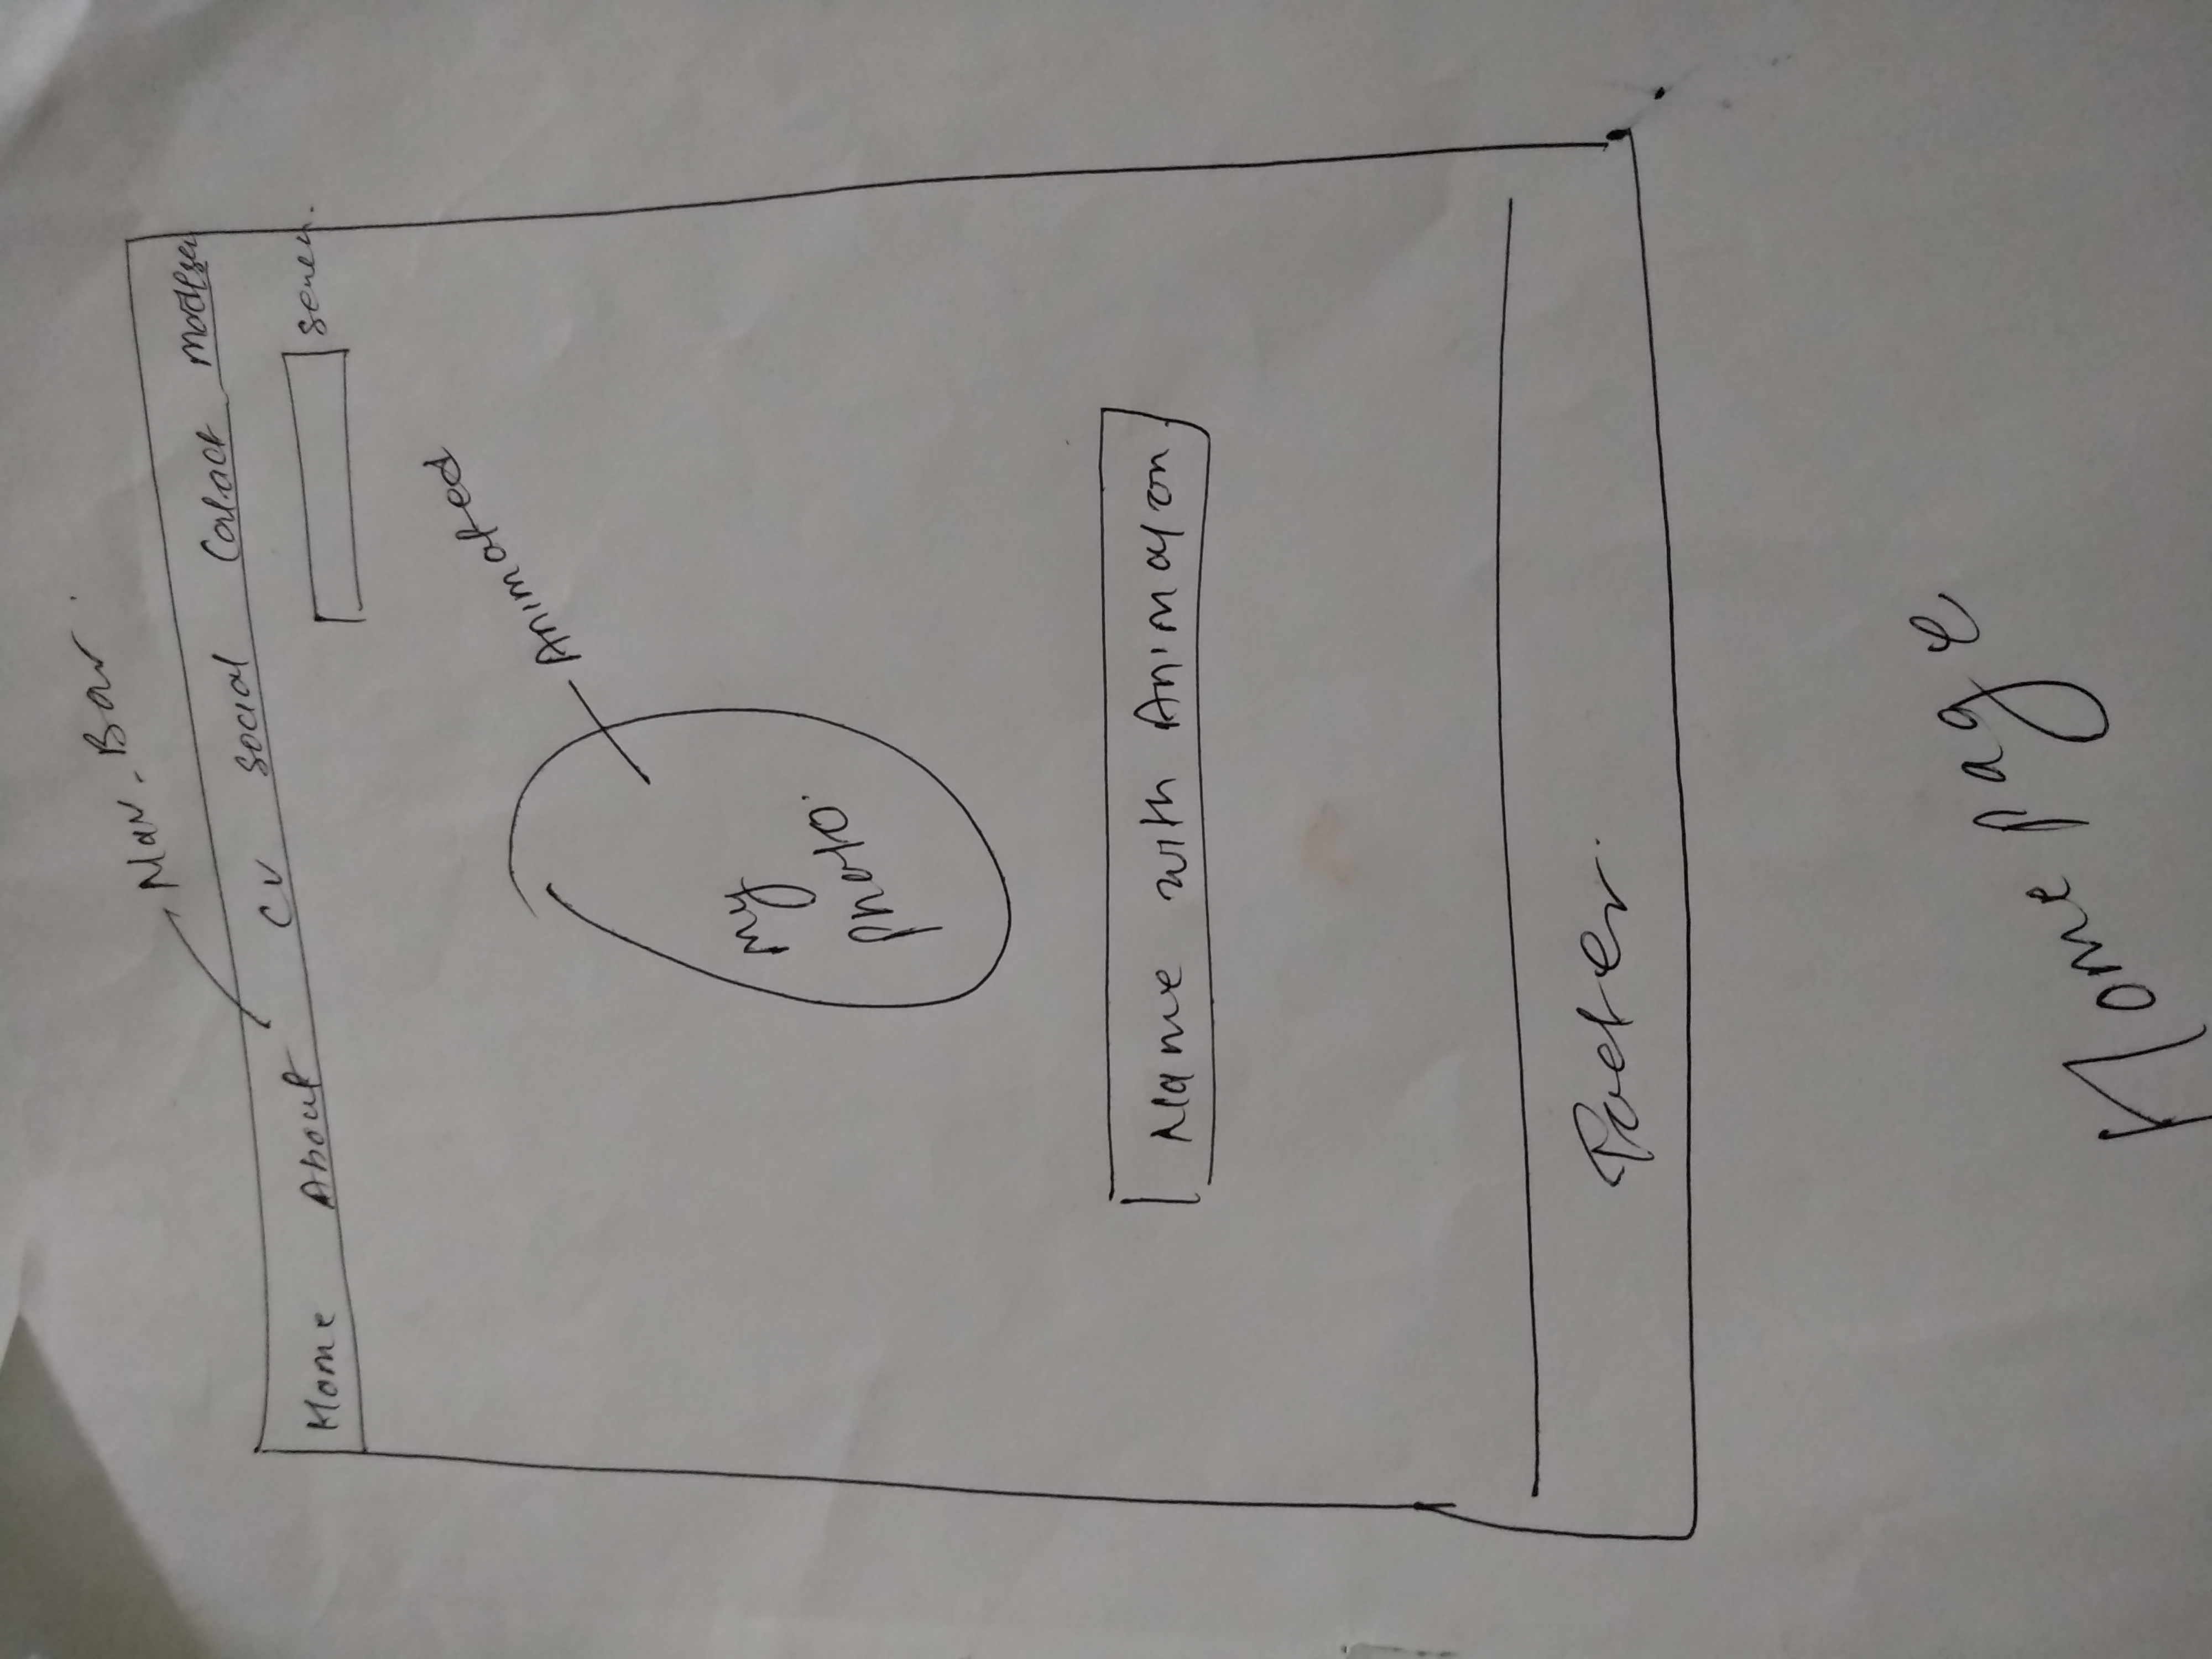 Nav-Bar.
Home About CV Social Contact
Animated
My
photo.
Name with Animation
Footer.
Home page